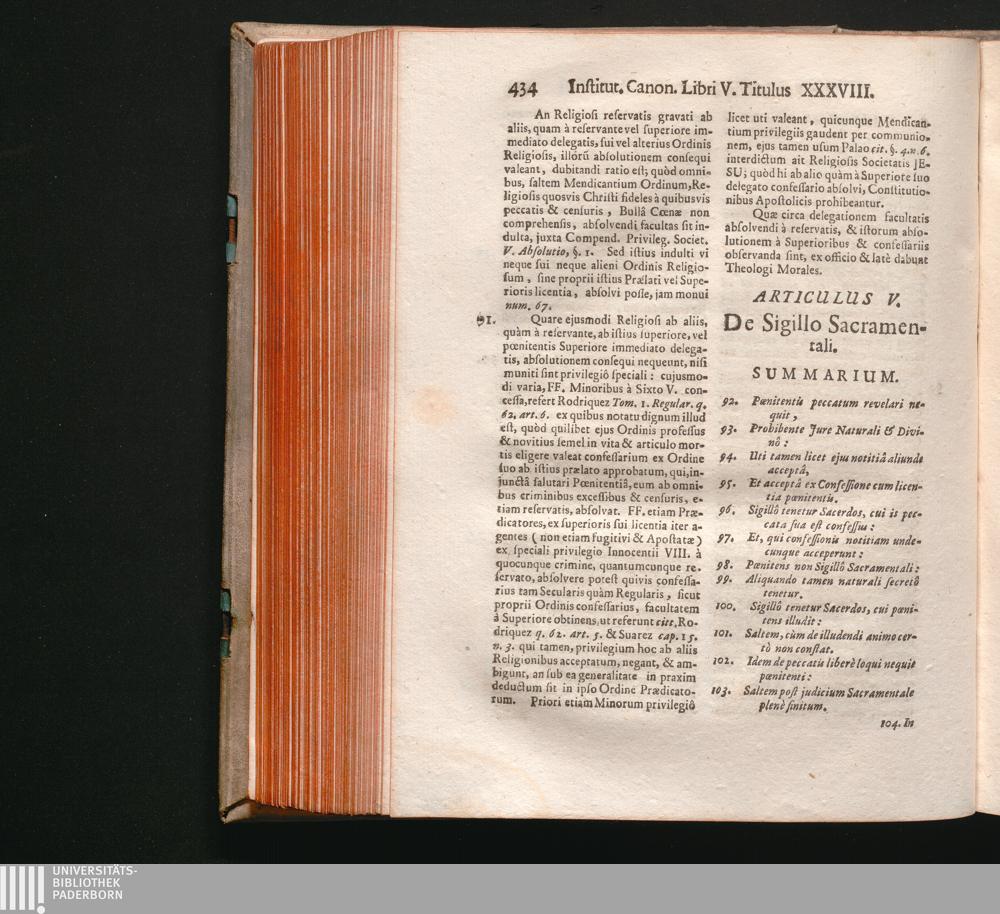 434 Inſtitut. Canon. Libri V. Titulus XXXVIII.
An Religioſi reſervatis gravati ab
aliis, quam à reſervante vel ſuperiore im-
mediato delegatis, ſui vel alterius Ordinis
Religioſis, illorũ abſolutionem conſequi
valeant, dubitandi ratio eſt; quòd omni-
bus, ſaltem Mendicantium Ordinum, Re-
ligioſis quosvis Chriſti fideles à quibusvis
peccatis & cenſuris, Bullâ Cœnæ non
comprehenſis, abſolvendi facultas ſit in-
dulta, juxta Compend. Privileg. Societ.
V. Abſolutio, §. 1. Sed iſtius indulti vi
neque ſui neque alieni Ordinis Religio-
ſum, ſine proprii iſtius Prælati vel Supe-
rioris licentia, abſolvi poſſe, jam monui
num. 67.
91. Quare ejusmodi Religioſi ab aliis,
quàm à reſervante, ab iſtius ſuperiore, vel
pœnitentis Superiore immediato delega-
tis, abſolutionem conſequi nequeunt, niſi
muniti ſint privilegiô ſpeciali: cujusmo-
di varia, FF. Minoribus à Sixto V. con-
ceſſa, refert Rodriquez Tom. 1. Regular. q.
62. art. 6. ex quibus notatu dignum illud
eſt, quòd quilibet ejus Ordinis profeſſus
& novitius ſemel in vita & articulo mor-
tis eligere valeat confeſſarium ex Ordine
ſuo ab iſtius prælato approbatum, qui, in-
junctâ ſalutari Pœnitentiâ, eum ab omni-
bus criminibus exceſſibus & cenſuris, e-
tiam reſervatis, abſolvat. FF. etiam Præ-
dicatores, ex ſuperioris ſui licentia iter a-
gentes (non etiam fugitivi & Apoſtatæ)
ex ſpeciali privilegio Innocentii VIII. à
quocunque crimine, quantumcunque re-
ſervato, abſolvere poteſt quivis confeſſa-
rius tam Secularis quàm Regularis, ſicut
proprii Ordinis confeſſarius, facultatem
â Superiore obtinens, ut referunt citt. Ro-
driquez q. 62. art. 5. & Suarez cap. 15.
n. 3. qui tamen, privilegium hoc ab aliis
Religionibus acceptatum, negant, & am-
bigunt, an ſub ea generalitate in praxim
deductum ſit in ipſo Ordine Prædicato-
rum. Priori etiam Minorum privilegiô
licet uti valeant, quicunque Mendican-
tium privilegiis gaudent per communio-
nem, ejus tamen uſum Palao cit. §. 4. n. 6.
interdictum ait Religioſis Societatis JE-
SU; quòd hi ab alio quàm à Superiore ſuo
delegato confeſſario abſolvi, Conſtitutio-
nibus Apoſtolicis prohibeantur.
Quæ circa delegationem facultatis
abſolvendi à reſervatis, & iſtorum abſo-
lutionem à Superioribus & confeſſariis
obſervanda ſint, ex officio & latè dabunt
Theologi Morales.
ARTICULUS V.
De Sigillo Sacramen-
tali.
SUMMARIUM.
92. Pœnitentis peccatum revelari ne-
quit,
93. Prohibente Jure Naturali & Divi-
nô:
94. Uti tamen licet ejus notitiâ aliunde
acceptâ,
95. Et acceptâ ex Confeſſione cum licen-
tia pœnitentis.
96. Sigillô tenetur Sacerdos, cui is pec-
cata ſua eſt confeſſus:
97. Et, qui confeſſionis notitiam unde-
cunque acceperunt:
98. Pœnitens non Sigillô Sacramentali:
99. Aliquando tamen naturali ſecretô
tenetur.
100. Sigillô tenetur Sacerdos, cui pœni-
tens illudit:
101. Saltem, cùm de illudendi animo cer-
tò non conſtat.
102. Idem de peccatis liberè loqui nequit
pœnitenti:
103. Saltem poſt judicium Sacramentale
plenè finitum.
104. In
UNIVERSITÄTS-
BIBLIOTHEK
PADERBORN